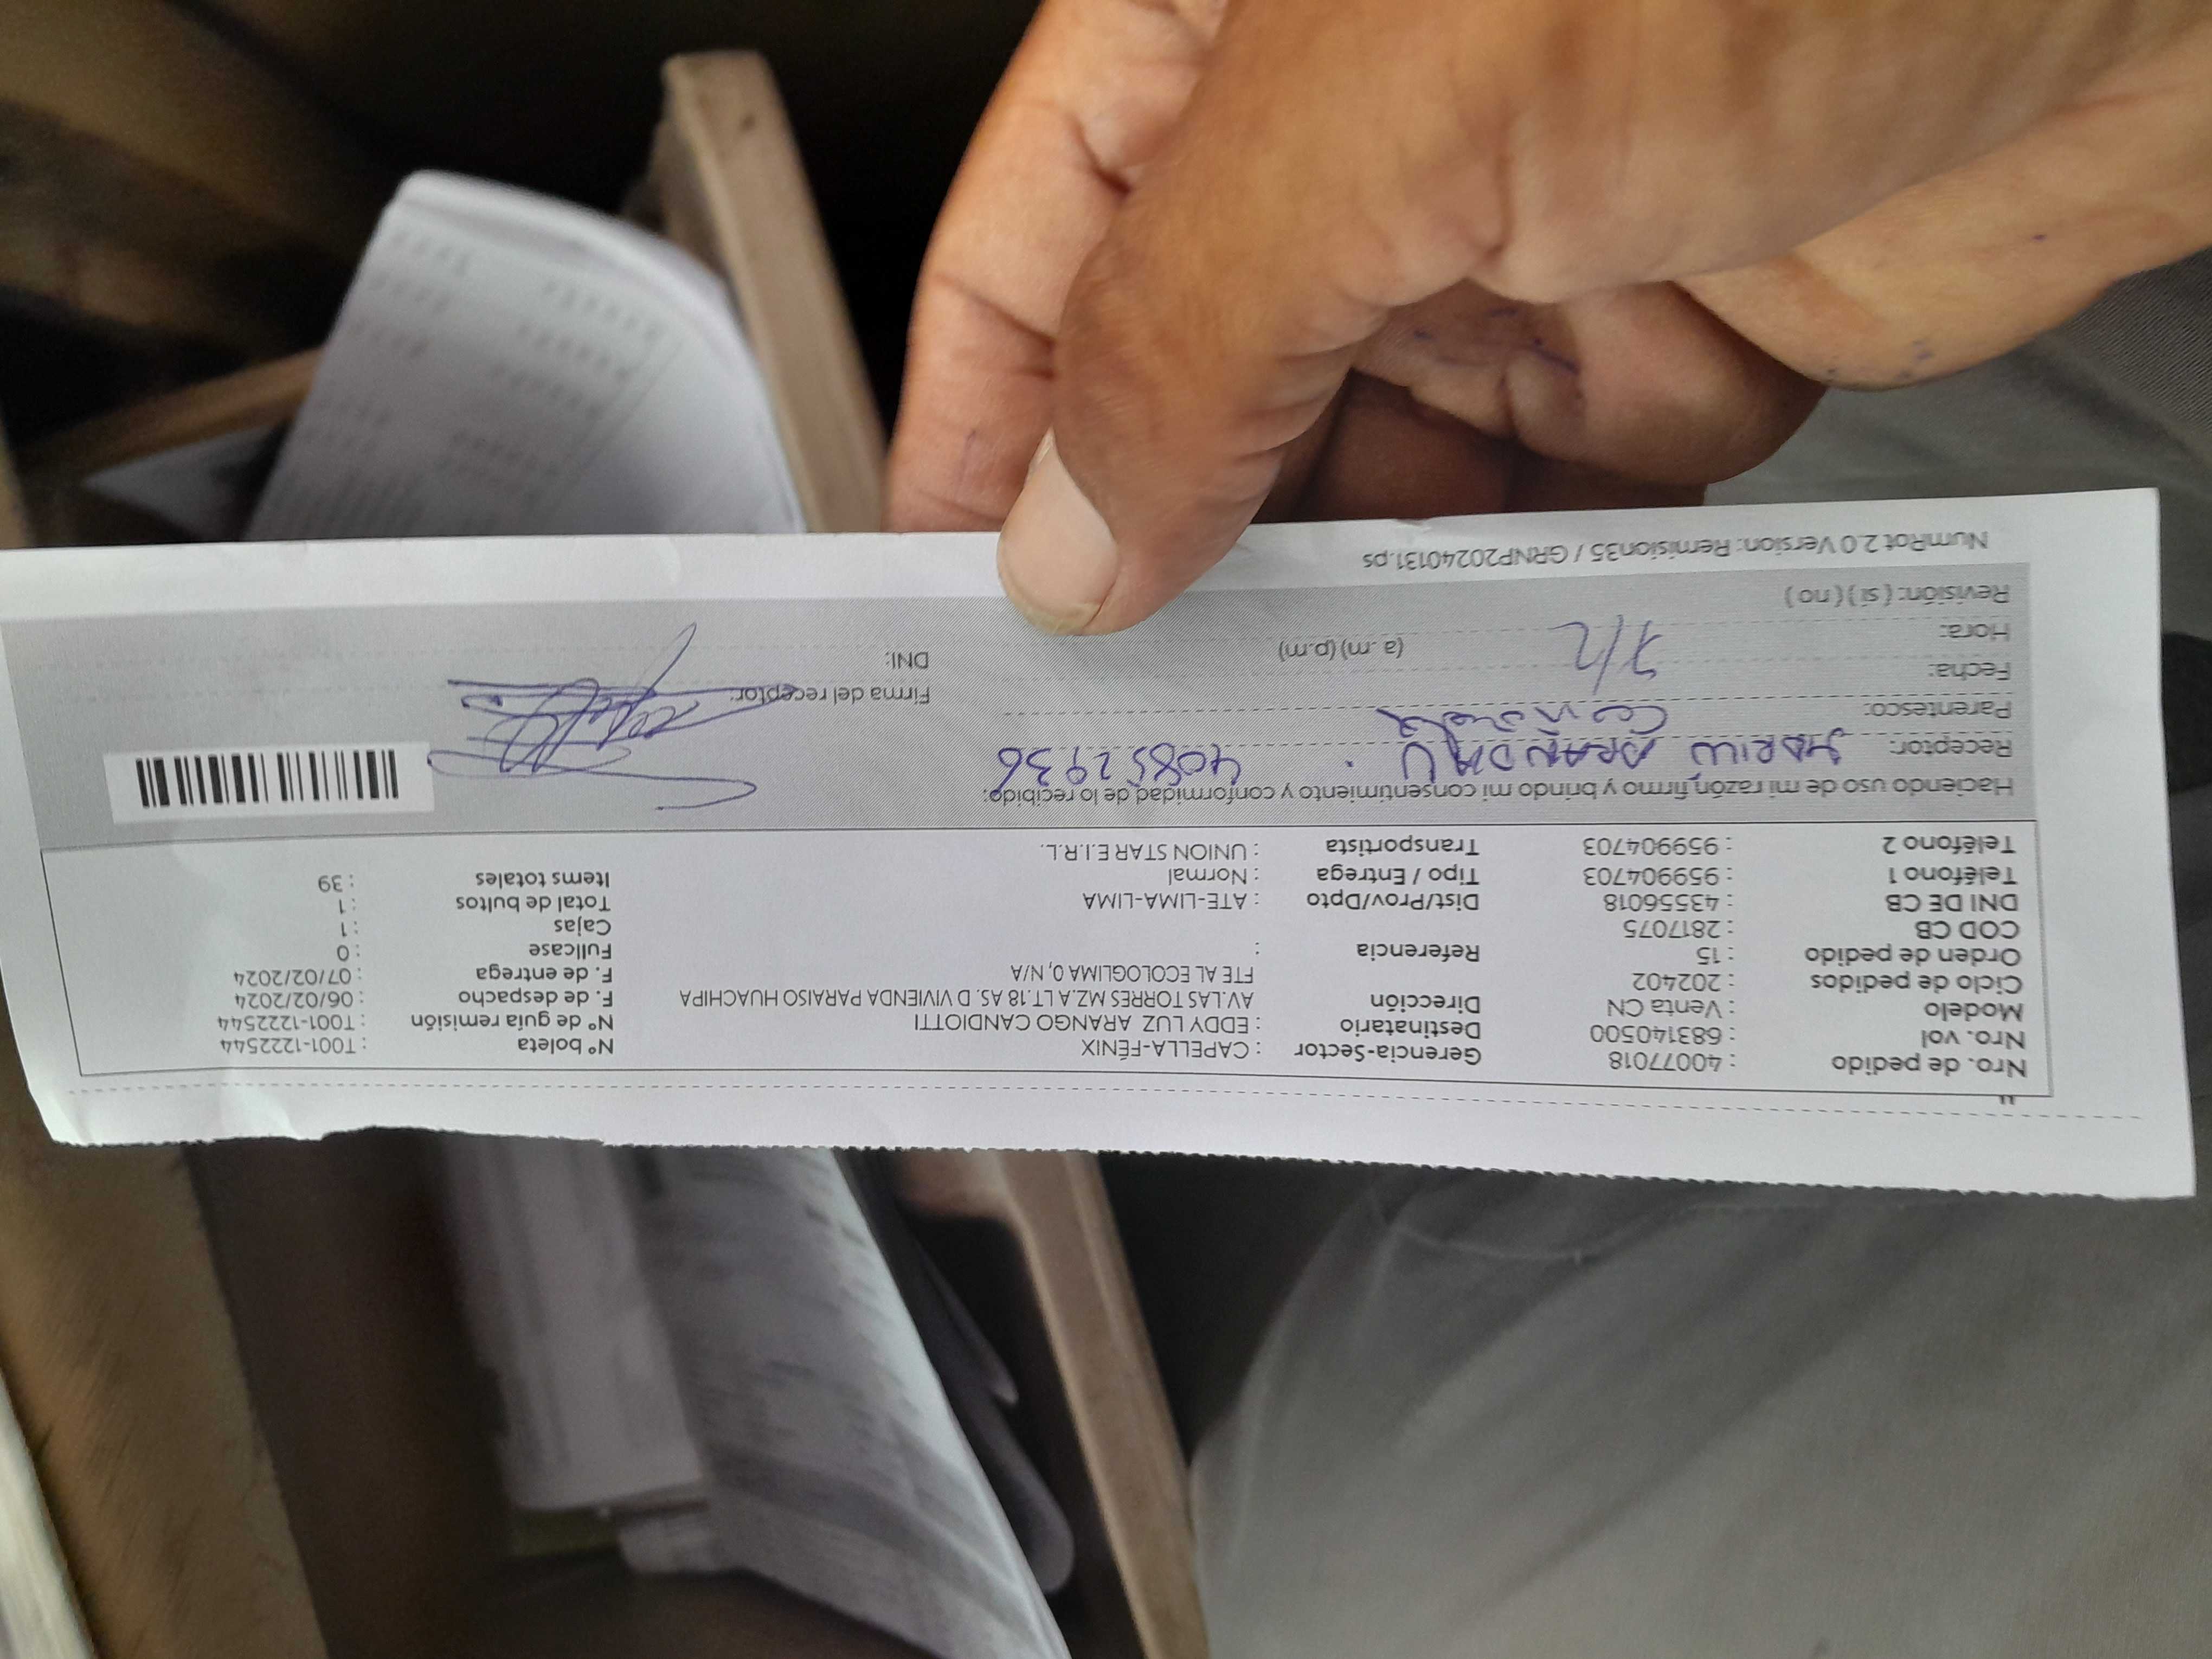 Nro. de pedido : 40077018 Gerencia-Sector : CAPELLA-FÉNIX Nº boleta : T001-1222544
Nro. vol : 683140500 Destinatario : EDDY LUZ ARANGO CANDIOTTI Nº de guía remisión : T001-1222544
Modelo : Venta CN Dirección AV.LAS TORRES MZ.A LT.18 AS. D VIVIENDA PARAISO HUACHIPA F. de despacho : 06/02/2024
Ciclo de pedidos : 202402 FTE AL ECOLOGLIMA 0, N/A F. de entrega : 07/02/2024
Orden de pedido : 15 Referencia : Fullcase : 0
COD CB : 2817075 Cajas : 1
DNI DE CB : 43556018 Dist/Prov/Dpto : ATE-LIMA-LIMA Total de bultos : 1
Teléfono 1 : 959904703 Tipo / Entrega : Normal Items totales : 39
Teléfono 2 : 959904703 Transportista : UNION STAR E.I.R.L.
Haciendo uso de mi razón firmo y brindo mi consentimiento y conformidad de lo recibido:
Receptor: 40852936
Parentesco:
Firma del receptor:
Fecha: 7/2
DNI:
Hora: (a .m) (p.m)
Revisión: ( sí ) ( no )
NumRot 2.0 Version: Remision35 / GRNP20240131.ps